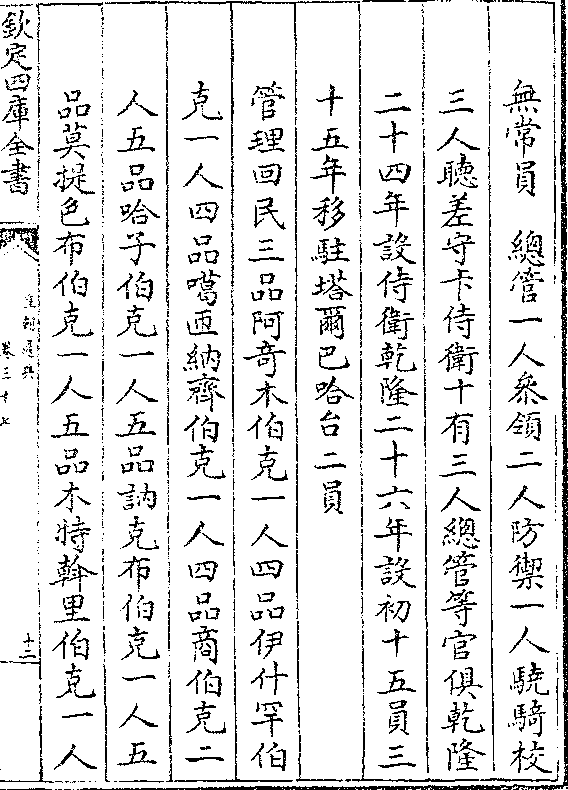 無常員　總管一人叅領二人防禦一人驍騎校
三人聽差守卡侍衛十有三人總管等官俱乾隆
二十四年設侍衛乾隆二十六年設初十五員三
十五年移駐塔爾巴哈台二員
管理回民三品阿竒木伯克一人四品伊什罕伯
克一人四品噶匝納齊伯克一人四品商伯克二
人五品哈子伯克一人五品訥克布伯克一人五
品莫提色布伯克一人五品木特斡里伯克一人
欽定四庫全書
皇朝通典
卷三十七
十二